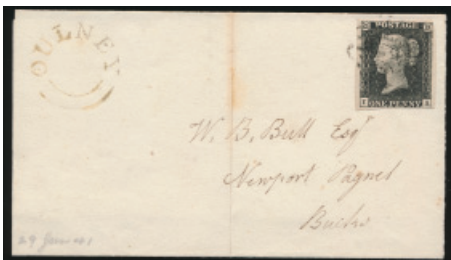 OULNEY
POSTAGE
ONE PENNY
W. B. Bull Esqr
Newport Pagnel
Bucks